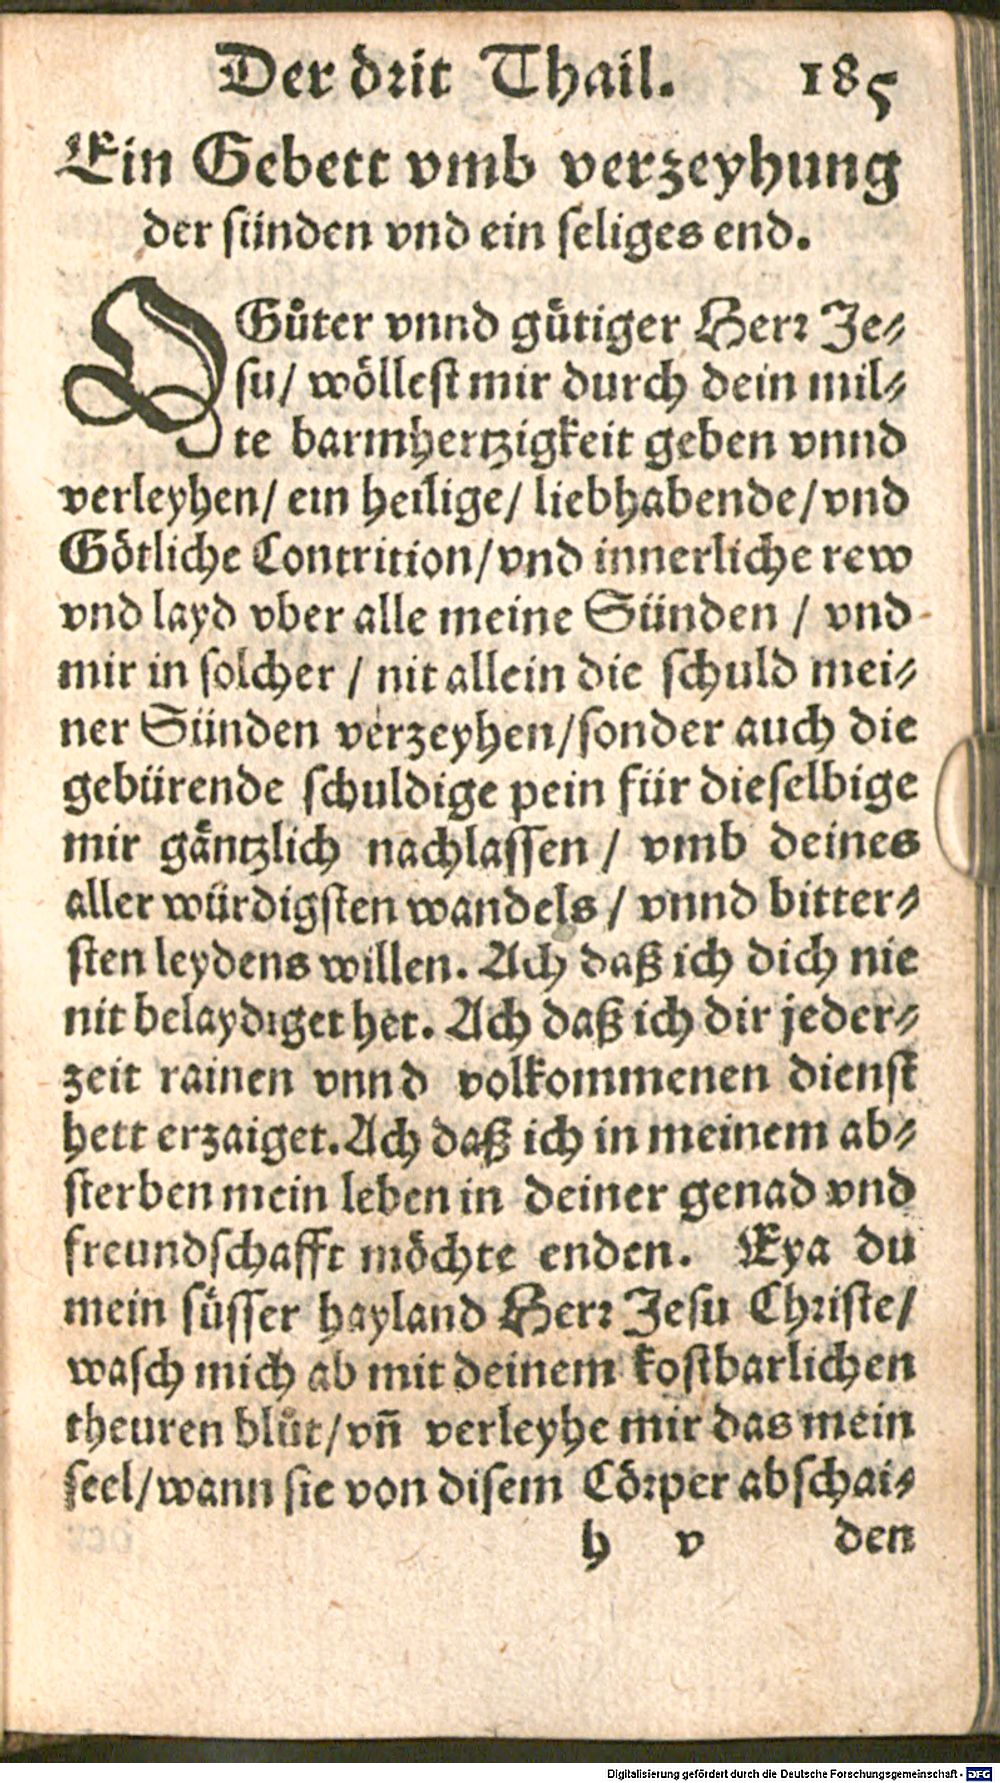 Der drit Thail. 185
Ein Gebett vmb verzeyhung
der sünden vnd ein seliges end.
O Gůter vnnd gütiger Herr Je⸗
su/ wöllest mir durch dein mil⸗
te barmhertzigkeit geben vnnd
verleyhen/ ein heilige/ liebhabende/ vnd
Götliche Contrition/ vnd innerliche rew
vnd layd vber alle meine Sünden / vnd
mir in solcher / nit allein die schuld mei⸗
ner Sünden verzeyhen/ sonder auch die
gebürende schuldige pein für dieselbige
mir gäntzlich nachlassen / vmb deines
aller würdigsten wandels / vnnd bitter⸗
sten leydens willen. Ach daß ich dich nie
nit belaydiget het. Ach daß ich dir jeder⸗
zeit rainen vnnd volkommenen dienst
hett erzaiget. Ach daß ich in meinem ab⸗
sterben mein leben in deiner genad vnd
freundschafft möchte enden. Eya du
mein süsser hayland Herr Jesu Christe/
wasch mich ab mit deinem kostbarlichen
theuren blůt/ vñ verleyhe mir das mein
seel/ wann sie von disem Cörper abschai⸗
h v den
Digitalisierung gefördert durch die Deutsche Forschungsgemeinschaft - DFG